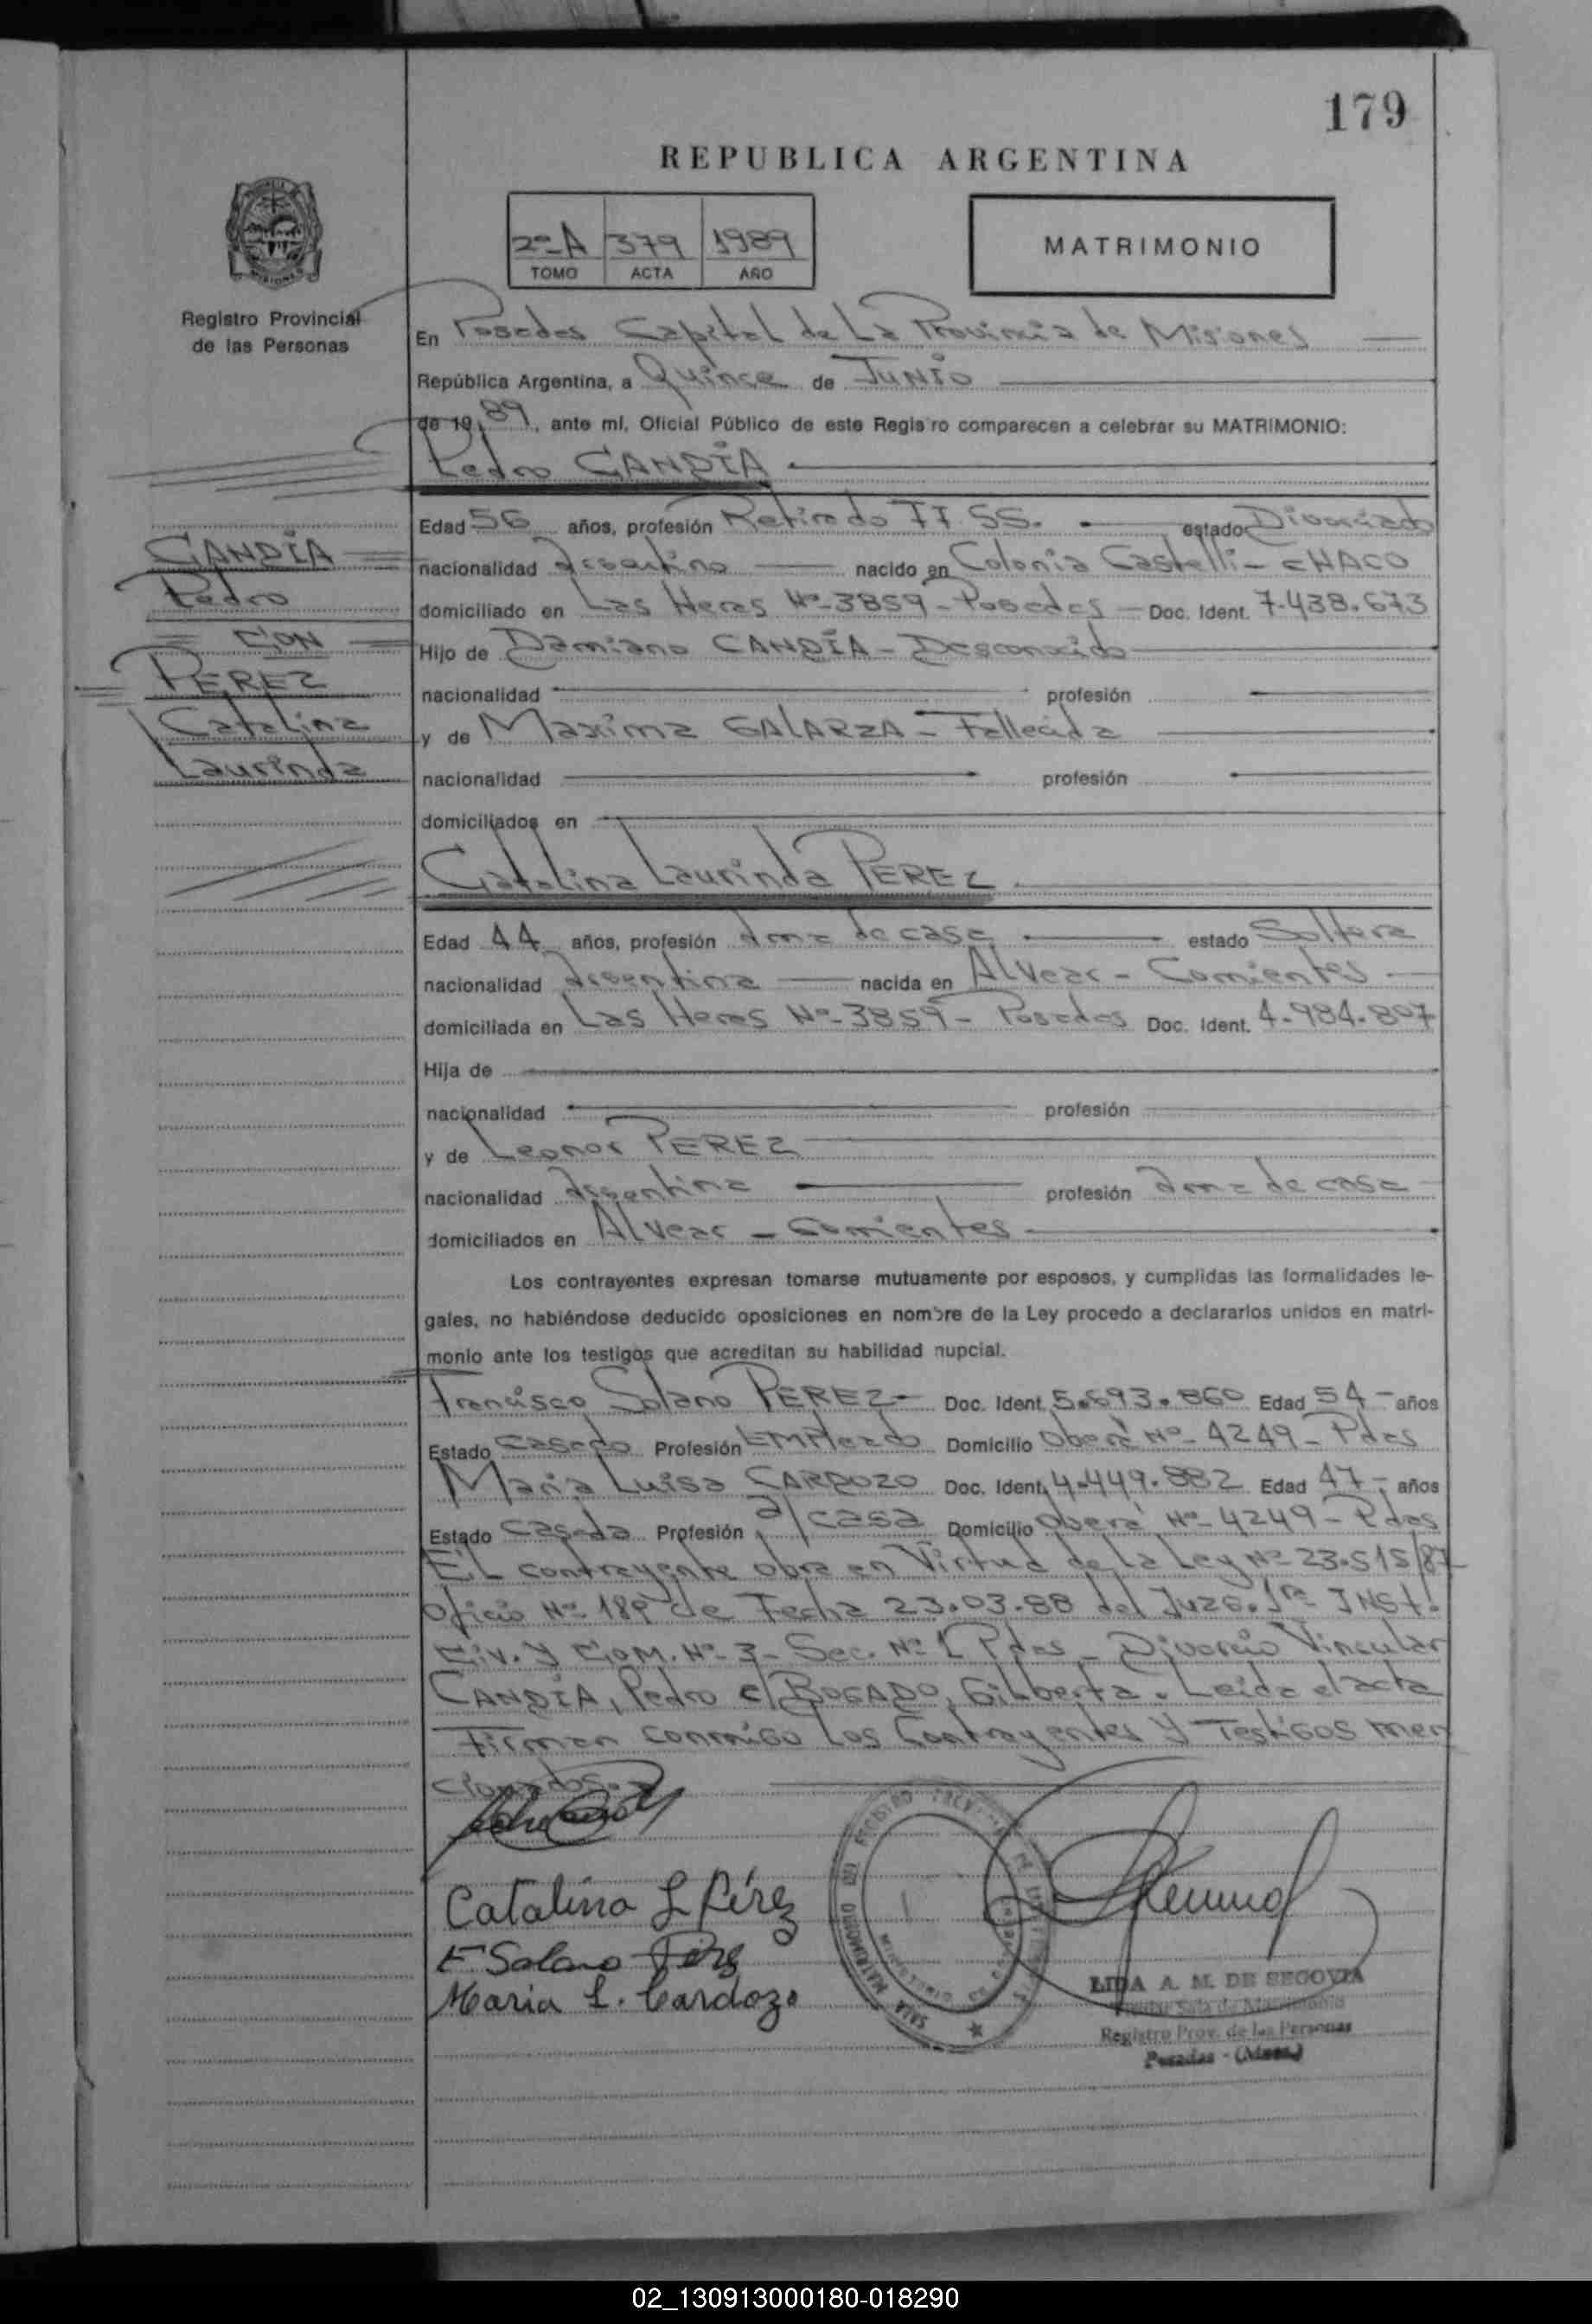 179
REPUBLICA ARGENTINA
2º-A 379 1989
TOMO ACTA AÑO
MATRIMONIO
Registro Provincial
de las Personas
En Posadas Capital de La Provincia de Misiones
República Argentina, a Quince de JUNIO
de 19 89, ante mí, Oficial Público de este Registro comparecen a celebrar su MATRIMONIO:
Pedro CANDIA
Edad 56 años, profesión Retirado FF. SS. estado Divorciado
nacionalidad Argentino nacido en Colonia Castelli - CHACO
domiciliado en Las Heras Nº-3859 - Posadas - Doc. Ident. 7.438.673
Hijo de Damiano CANDÍA - Desconocido
nacionalidad profesión
y de Maxima GALARZA - Fallecida
nacionalidad profesión
domiciliados en
CANDÍA
Pedro
CON
PEREZ
Catalina
Laurinda
Catalina Laurinda PEREZ
Edad 44 años, profesión ama de casa estado Soltera
nacionalidad Argentina nacida en Alvear - Corrientes
domiciliada en Las Heras Nº-3859 - Posadas Doc. Ident. 4.984.807
Hija de
nacionalidad profesión
y de Leonor PEREZ
nacionalidad Argentina profesión ama de casa
domiciliados en Alvear - Corrientes
Los contrayentes expresan tomarse mutuamente por esposos, y cumplidas las formalidades le-
gales, no habiéndose deducido oposiciones en nombre de la Ley procedo a declararlos unidos en matri-
monio ante los testigos que acreditan su habilidad nupcial.
Francisco Solano PEREZ - Doc. Ident. 5.693.860 Edad 54 - años
Estado Casado Profesión EMPleado Domicilio Oberá Nº- 4249 - Pdas
Maria Luisa CARDOZO Doc. Ident. 4.449.882 Edad 47 - años
Estado Casada Profesión a/casa Domicilio Oberá Nº- 4249 - Pdas
El contrayente obra en Virtud de La Ley Nº 23.515/87
Oficio Nº 189 de Fecha 23.03.88 del Juzg. 1ra INSt.
Civ. y COM. Nº- 3 - Sec. Nº 1 Pdas - Divorcio Vincular
CANDIA, Pedro c/ BOGADO, Gilberta. Leída el acta
Firman conmigo Los Contrayentes y Testigos men
cionados.
Catalina L Pérez
F Solano Pérez
Maria L. Cardozo
LIDA A. M. DE SEGOVIA
Registro Prov. de las Personas
Posadas - (Mnes.)
02_130913000180-018290